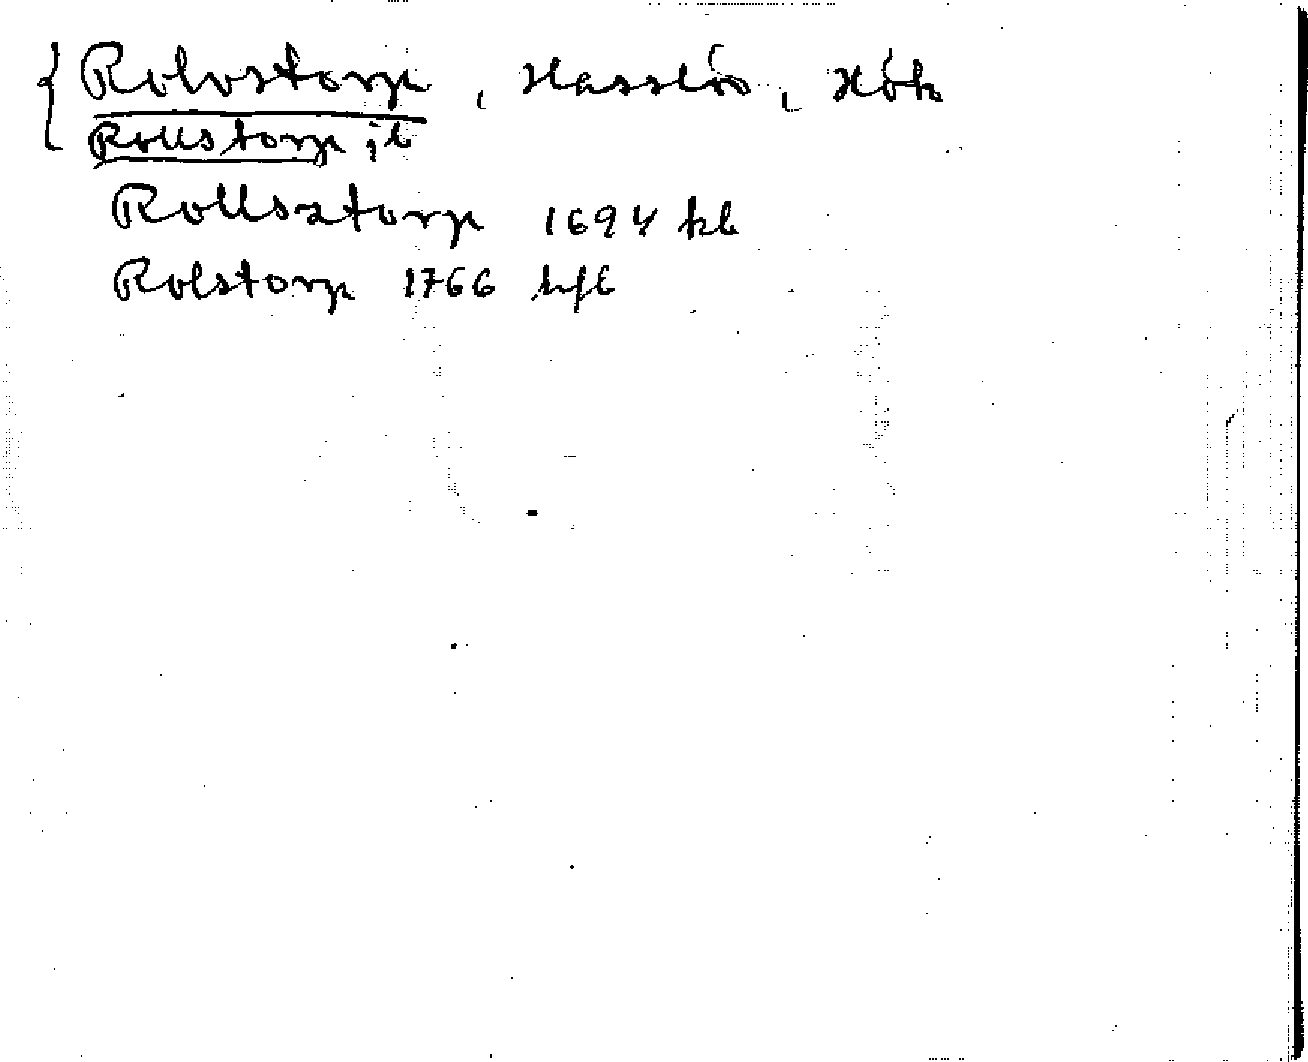 { Rolvstorp, Hasslöv, Hök
Rollstorp jb
Rollsztorp 1694 kb
Rolstorp 1766 hfl